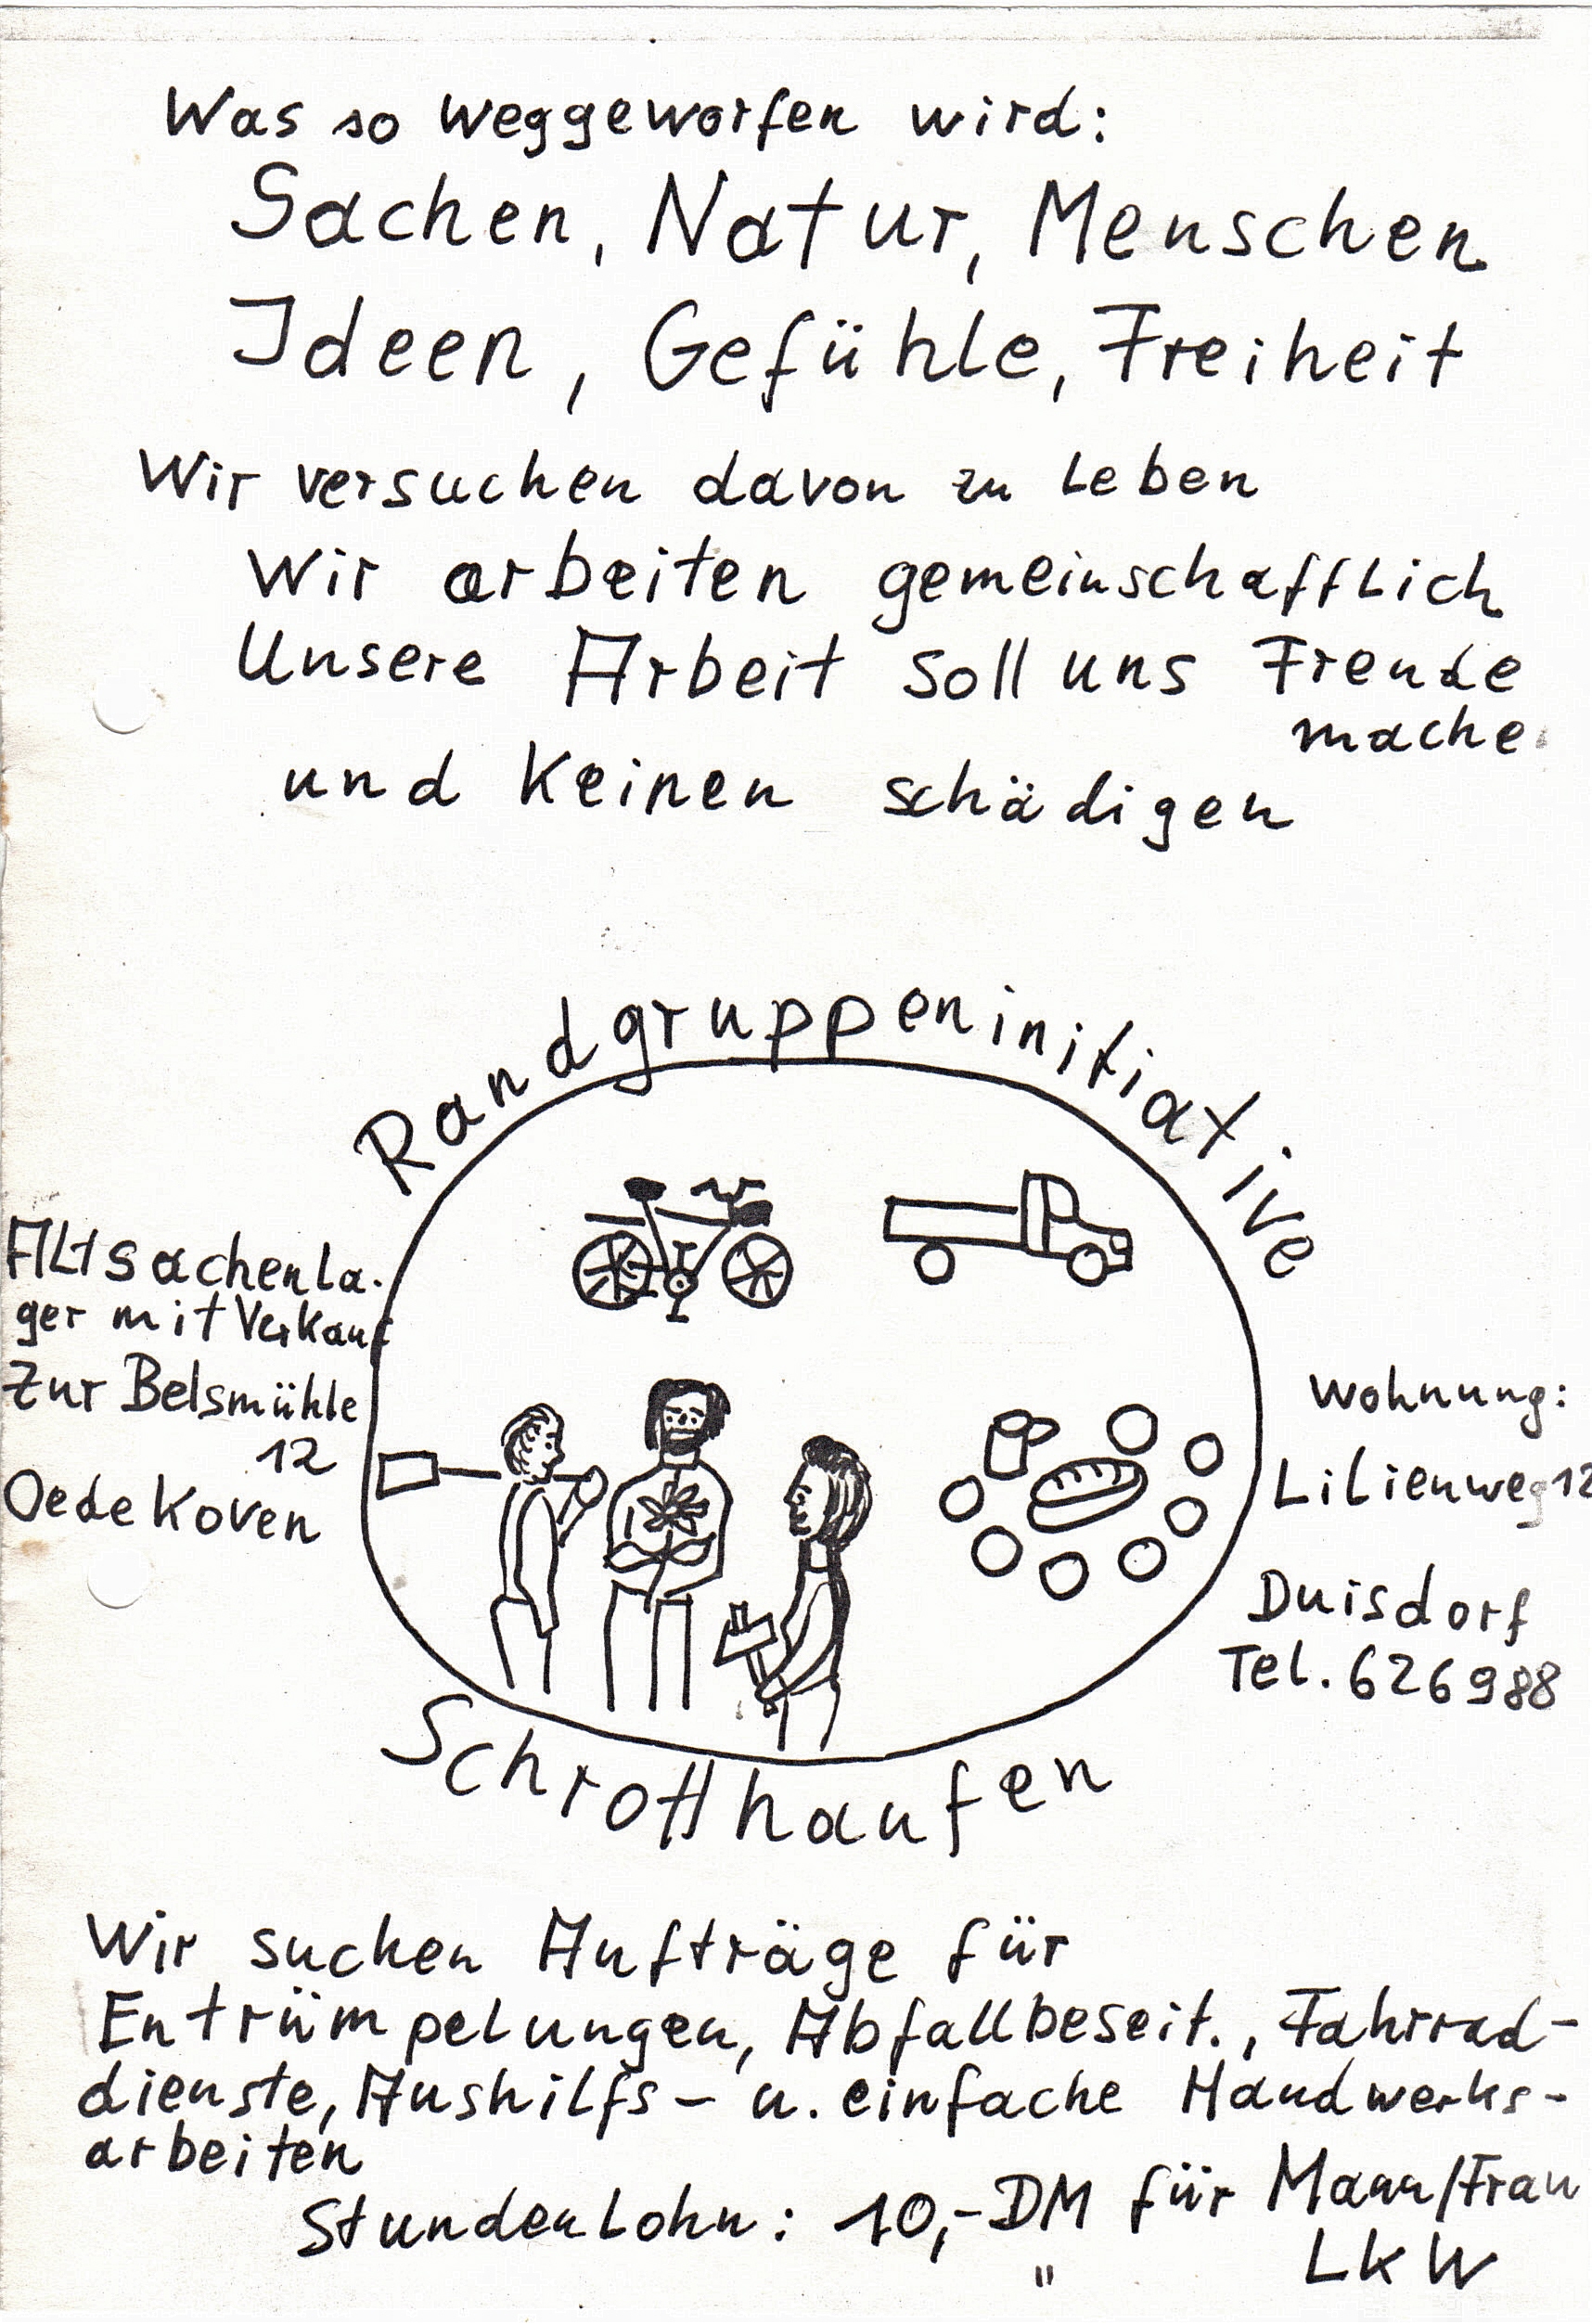 Was so weggeworfen wird:
Sachen, Natur, Menschen
Ideen, Gefühle, Freiheit
Wir versuchen davon zu leben
Wir arbeiten gemeinschafflich
Unsere Arbeit soll uns Freude
mache
und keinen schädigen
Randgruppeninitiative
Altsachenla-
ger mit Verkauf
Zur Belsmühle
12
Oedekoven
Wohnung:
Lilienweg 12
Duisdorf
Tel. 626988
Schrotthaufen
Wir suchen Aufträge für
Entrümpelungen, Abfallbeseit., Fahrrad-
dienste, Aushilfs- u. einfache Handwerks-
arbeiten
Stundenlohn: 10,- DM für Mann/Frau
" LKW